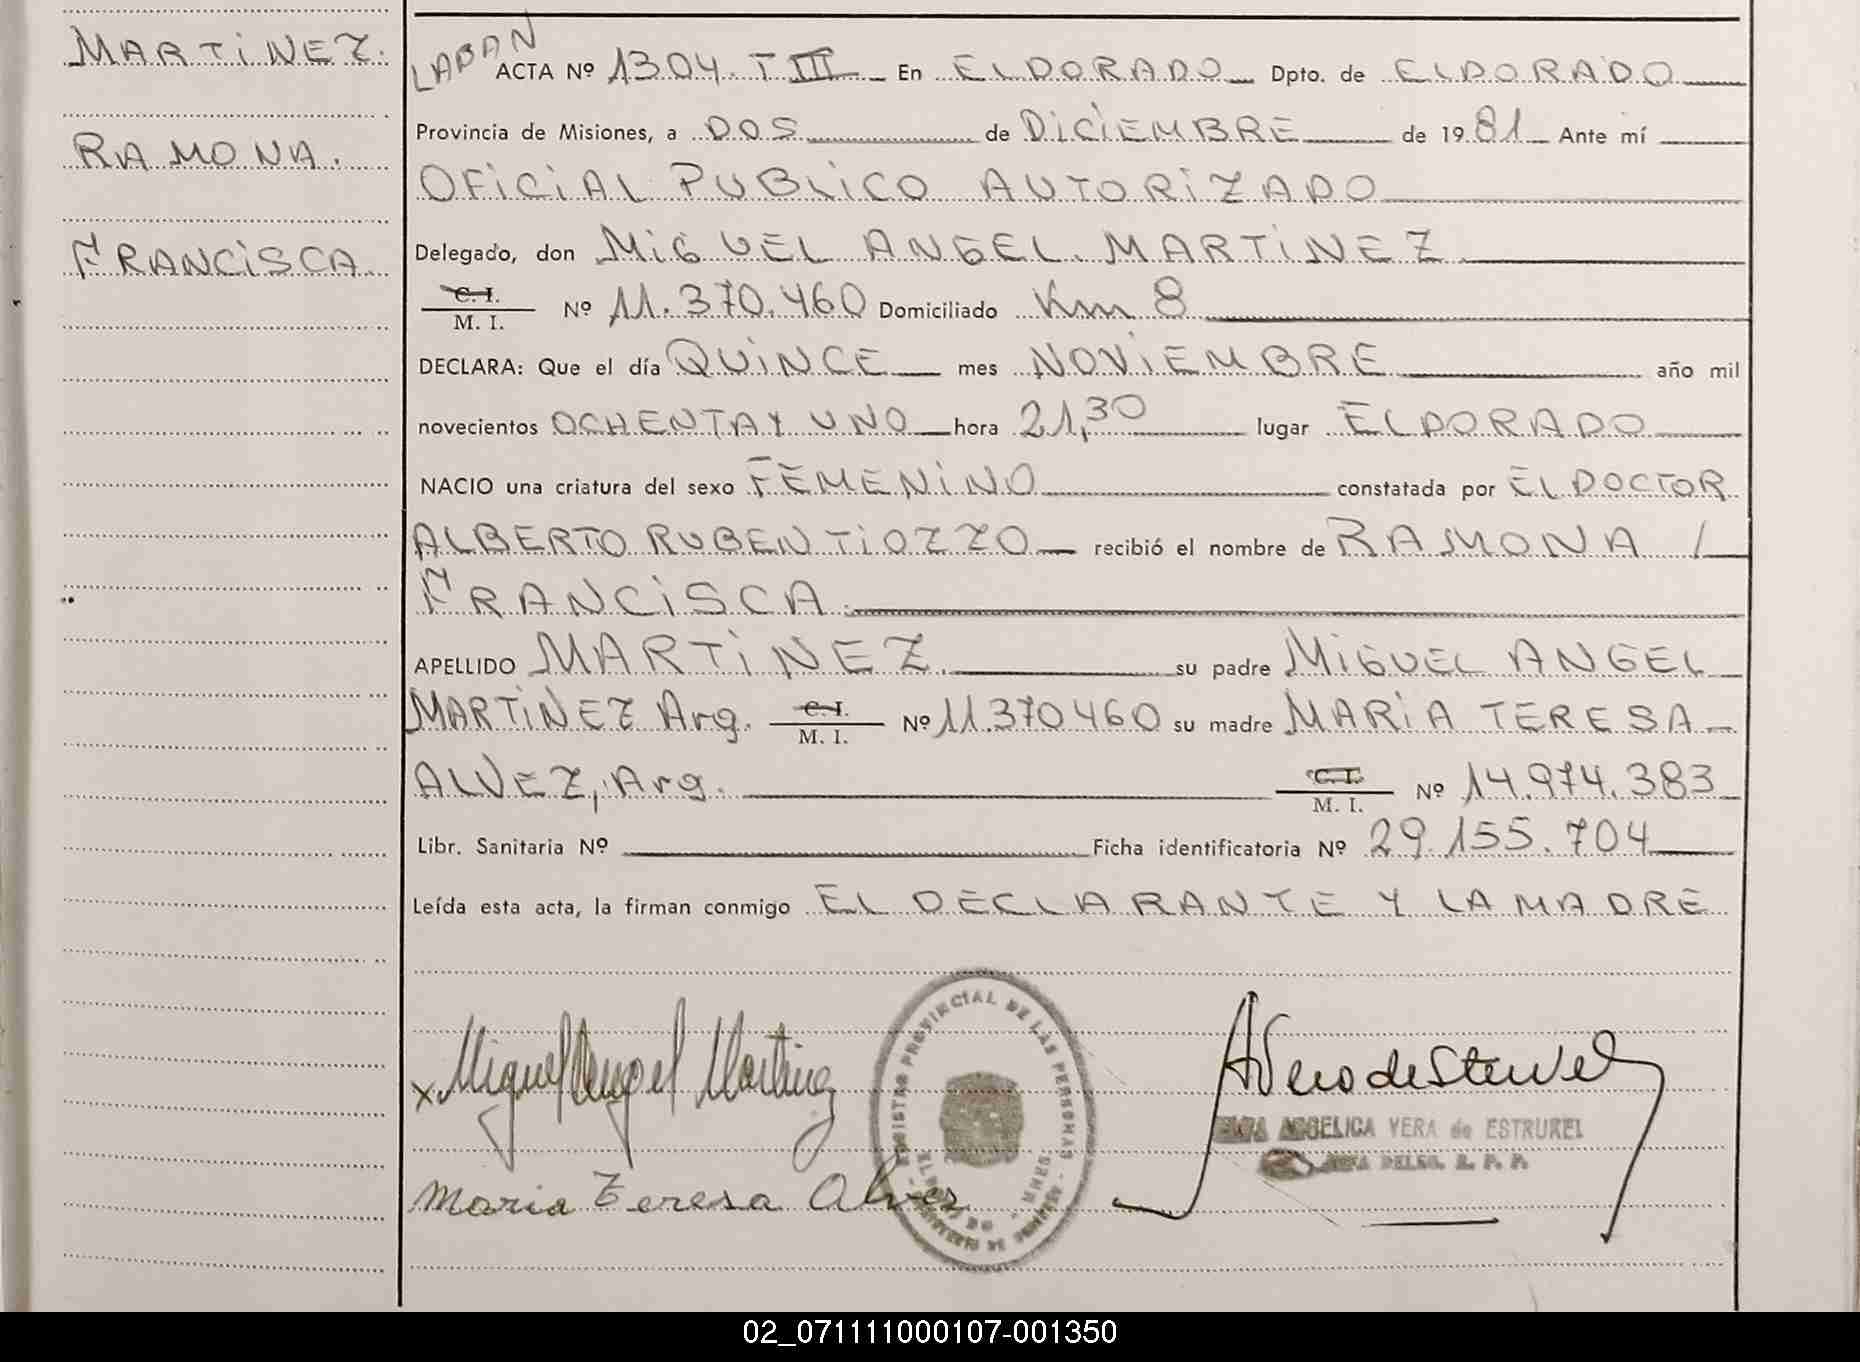 MARTINEZ.
RAMONA.
FRANCISCA
LABAN
ACTA Nº 1304. T III En ELDORADO Dpto. de ELDORADO
Provincia de Misiones, a DOS de DICIEMBRE de 1981 Ante mí
OFICIAL PUBLICO AUTORIZADO
Delegado, don MIGUEL ANGEL MARTINEZ
C. I.
M. I. Nº 11.370.460 Domiciliado Km 8
DECLARA: Que el día QUINCE mes NOVIEMBRE año mil
novecientos OCHENTA Y UNO hora 21,30 lugar ELDORADO
NACIO una criatura del sexo FEMENINO constatada por EL DOCTOR
ALBERTO RUBEN TIOZZO recibió el nombre de RAMONA /
FRANCISCA
APELLIDO MARTINEZ su padre MIGUEL ANGEL
MARTINEZ Arg. C. I. M. I. Nº 11.370460 su madre MARIA TERESA
ALVEZ, Arg. C. I. M. I. Nº 14.974.383
Libr. Sanitaria Nº Ficha identificatoria Nº 29.155.704
Leída esta acta, la firman conmigo EL DECLARANTE Y LA MADRE
x Miguel Angel Martinez
Maria Teresa Alvez
REGISTRO PROVINCIAL DE LAS PERSONAS
ANGELICA VERA de ESTRUREL
02_071111000107-001350